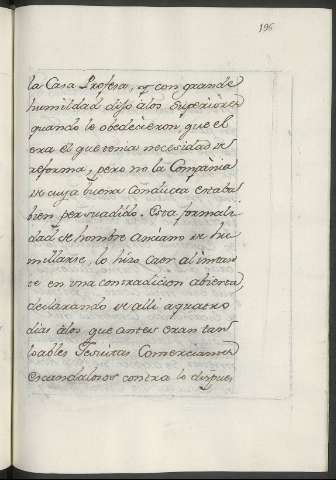 196
la Casa Profesa, q̃ con grande
humildad dijo álos Superiòres
quando le obedecieron, que el
era el que tenia necesidad de
reforma, pero no la Compãnia
de cuya buena Conducta estaba
bien persuadido. Esta formali
dad de hombre anciano se hu
millarse, lo hizo caer al instan
te en una contradicion abierta,
declarando de alli a quatro
dias álos que antes eran tan
loables Jesuitas Comerciantes
escandalosos contra lo dispues